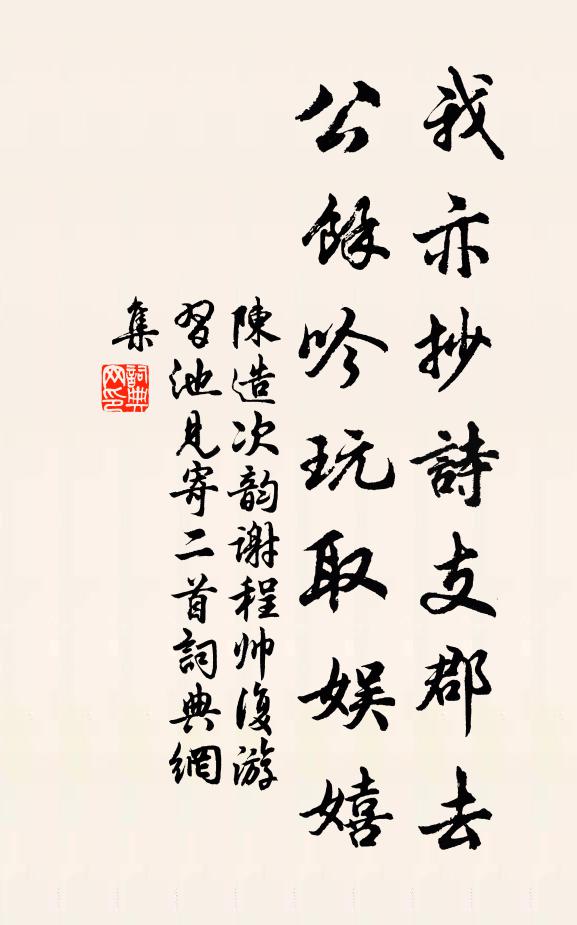 我亦抄詩支郡去
公餘吟玩取娱嬉
陳造次韵謝程帅復游
習池見寄二首詞典網
集
詞典网印